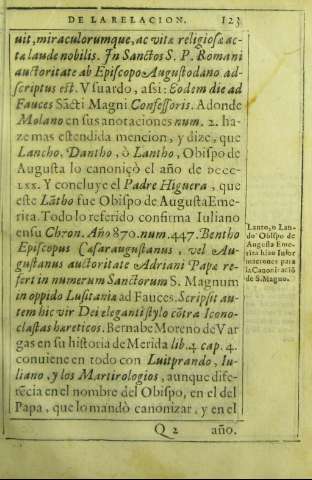 DE LA RELACION. 123
uit, miraculorumque, ac vitæ religiosæ ac-
ta laude nobilis. In Sanctos S. P. Romani
auctoritate ab Episcopo Augustodano ad-
scriptus est. Vsuardo, assi: Eodem die ad
Fauces Sãcti Magni Confessoris. Adonde
Molano en sus anotaciones num. 2. ha-
ze mas estendida mencion, y dize, que
Lancho, Dantho, ò Lantho, Obispo de
Augusta lo canoniçò el año de DCCC-
LXX. Y concluye el Padre Higuera, que
este Lãtho fue Obispo de Augusta Eme-
rita. Todo lo referido confirma Iuliano
en su Chron. Año 870. num. 447. Bentho
Episcopus Cæsaraugustanus, vel Au-
gustanus auctoritate Adriani Papæ re-
fert in numerum Sanctorum S. Magnum
in oppido Lusitania ad Fauces. Scripsit au-
tem hic vir Dei eleganti stylo cõtra Icono-
clastas hæreticos. Bernabe Moreno de Var-
gas en su historia de Merida lib. 4. cap. 4.
conuiene en todo con Luitprando, Iu-
liano, y los Martirologios, aunque dife-
rẽcia en el nombre del Obispo, en el del
Papa, que lo mandò canonizar, y en el
Q 2 año.
Lanto, o Lan-
do Obispo de
Augusta Eme-
rita hizo Infor
maciones para
la Canonizaciõ
de S. Magno.